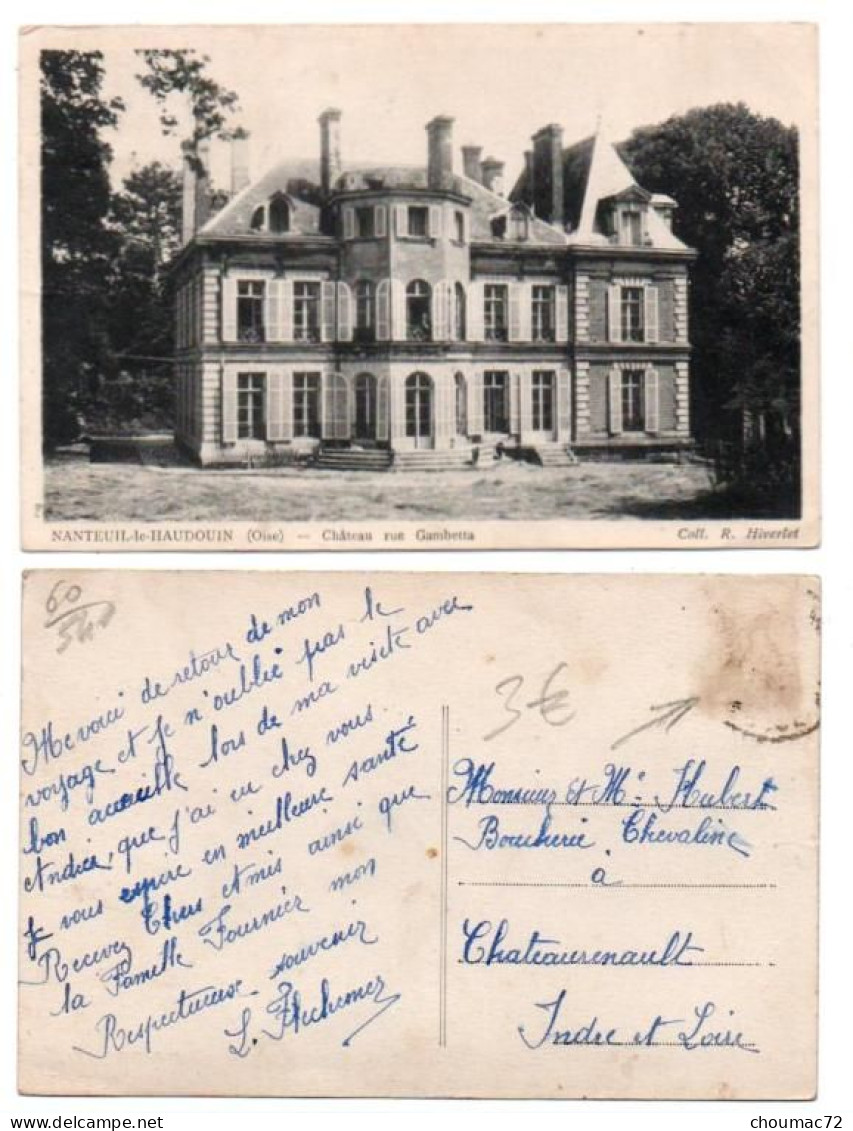 NANTEUIL-le-HAUDOUIN (Oise) — Château rue Gambetta
Coll. R. Hiverlet
60
3€
Me voici de retour de mon
voyage et je n'oublie pas le
bon accueille lors de ma visite avec
Andrée, que j'ai eu chez vous.
Je vous espire en meilleure santé
Recevez Chers et amis ainsi que
la Famille Fournier mon
Respectueuse souvenir
L.
Monsieur et Me Hubert
Boucherie Chevaline
à
Chateaurenault
Indre et Loire
choumac72